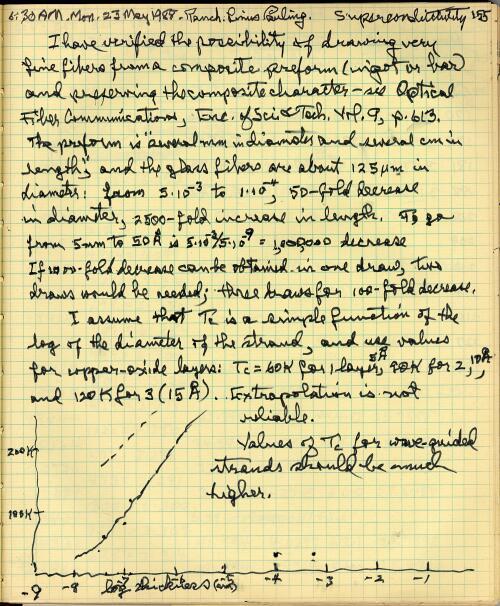 6:30 AM. Mon. 23 May 1988. Ranch. Linus Pauling. Superconductivity 155
I have verified the possibility of drawing very
fine fibers from a composite preform (ingot or bar)
and preserving the composite character - see Optical
Fiber Communications, Enc. of Sci & Tech. Vol. 9, p. 613.
The preform is "several mm in diameter and several cm in
length", and the glass fibers are about 125 μm in
diameter: from 5·10⁻³ to 1·10⁻⁴, 50-fold decrease
in diameter, 2500-fold increase in length. To go
from 5mm to 50Å is 5·10⁻³/5·10⁻⁹ = 1,000,000 decrease
If 1000-fold decrease can be obtained in one draw, two
draws would be needed; three draws for 100-fold decrease.
I assume that Tc is a simple function of the
log of the diameter of the strand, and use values
for copper-oxide layers: Tc = 60K for 1 layer, 5Å 90K for 2, 10Å,
and 120K for 3 (15Å). Extrapolation is not
reliable.
Values of Tc for wave-guided
strands should be much
higher.
200K
100K
-9 -8 -7 log thickness -4 -3 -2 -1